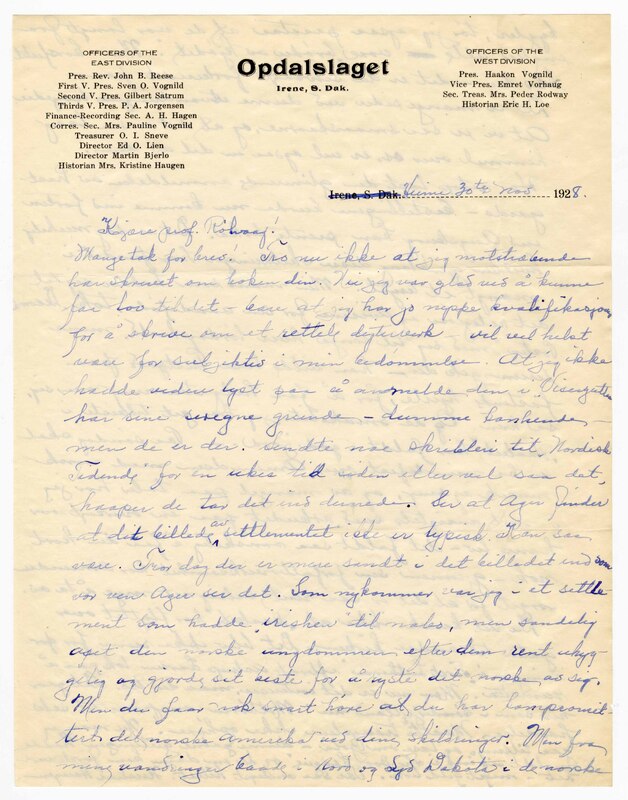 OFFICERS OF THE
EAST DIVISION
Pres. Rev. John B. Reese
First V. Pres. Sven O. Vognild
Second V. Pres. Gilbert Satrum
Thirds V. Pres. P. A. Jorgensen
Finance-Recording Sec. A. H. Hagen
Corres. Sec. Mrs. Pauline Vognild
Treasurer O. I. Sneve
Director Ed O. Lien
Director Martin Bjerlo
Historian Mrs. Kristine Haugen
Opdalslaget
Irene, S. Dak.
OFFICERS OF THE
WEST DIVISION
Pres. Haakon Vognild
Vice Pres. Emret Vorhaug
Sec. Treas. Mrs. Peder Rodway
Historian Eric H. Loe
Irene, S. Dak. 30te Nov 1928.
Kjære prof. Rölvaag!
Mange tak for brev! Tro nu ikke at jeg motstræbende
har skrevet om boken din. Nei jeg var glad ved å kunne
faa lov til det – bare at jeg har jo neppe kvalifikasjon
for å skrive om et rettele dikterverk vil vel helst
være for subjektiv i min bedømmelse. At jeg ikke
hadde videre lyst paa å anmelde den i
har sine egne grunde – dumme kanhende –
men de er der. Sendte noe skribleri til "Nordisk
Tidende" for en ukes tid siden eller vel saa det,
haaper de tar det ind dernede. Ser at Ager finder
at dit billede av settlementet ikke er typisk. Kan saa
være. Tror dog der er mere sandt i det billedet end som
vor ven Ager ser det. Som nykommer var jeg i et settle-
ment som hadde "irishen" til nabo, men sandelig
apet den norske ungdommen efter dem rent uhyg-
gelig og gjorde sit beste for å ryste det norske av seg.
Men du faar nok snart höre at du har kompromit-
tert det norske Amerika ved dine skildringer. Men fra
mine vandringer baade i Nord og Syd Dakota i de norske